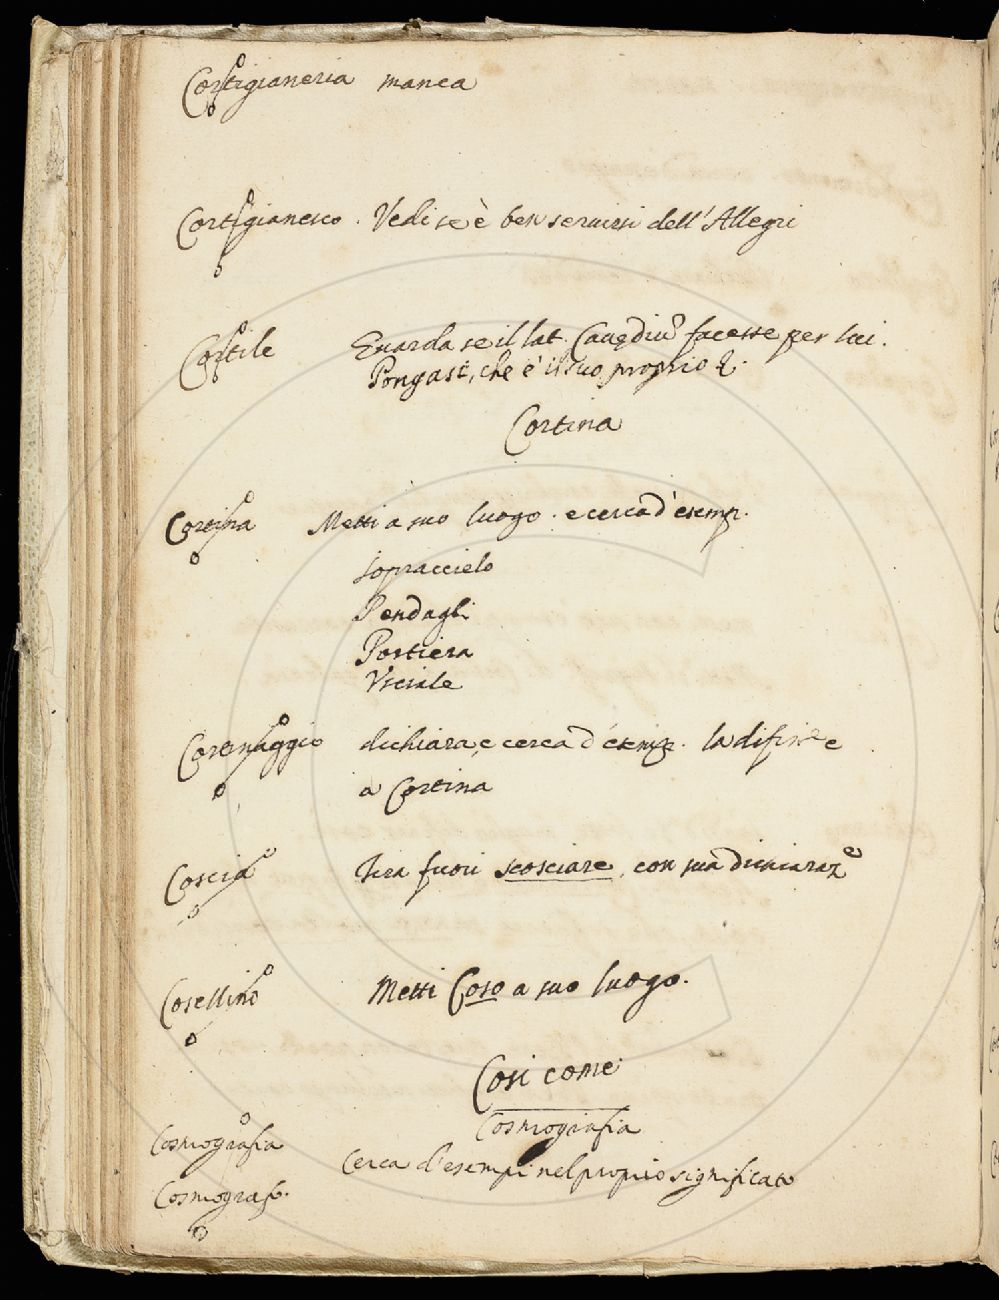 Cortigianeria manca
Cortigianesco. Vedi se è ben servirsi dell'Allegri
Cortile Guarda se il lat. Cavędiũ facesse per lui.
Pongasi, che è il suo proprio
Cortina
Cortina Metti a suo luogo. e cerca d'esemp.
sopraccielo
Pendagli
Portiera
Usciale
Cortinaggio dichiara, e cerca d'esemp. la difin e
a Cortina
Coscia Tira fuori scosciare, con sua dichiaraz.e
Cosellino Metti Coso a suo luogo.
Cosi come
Cosmografia
Cosmografia cerca d'esempi nel proprio significato
Cosmografo.